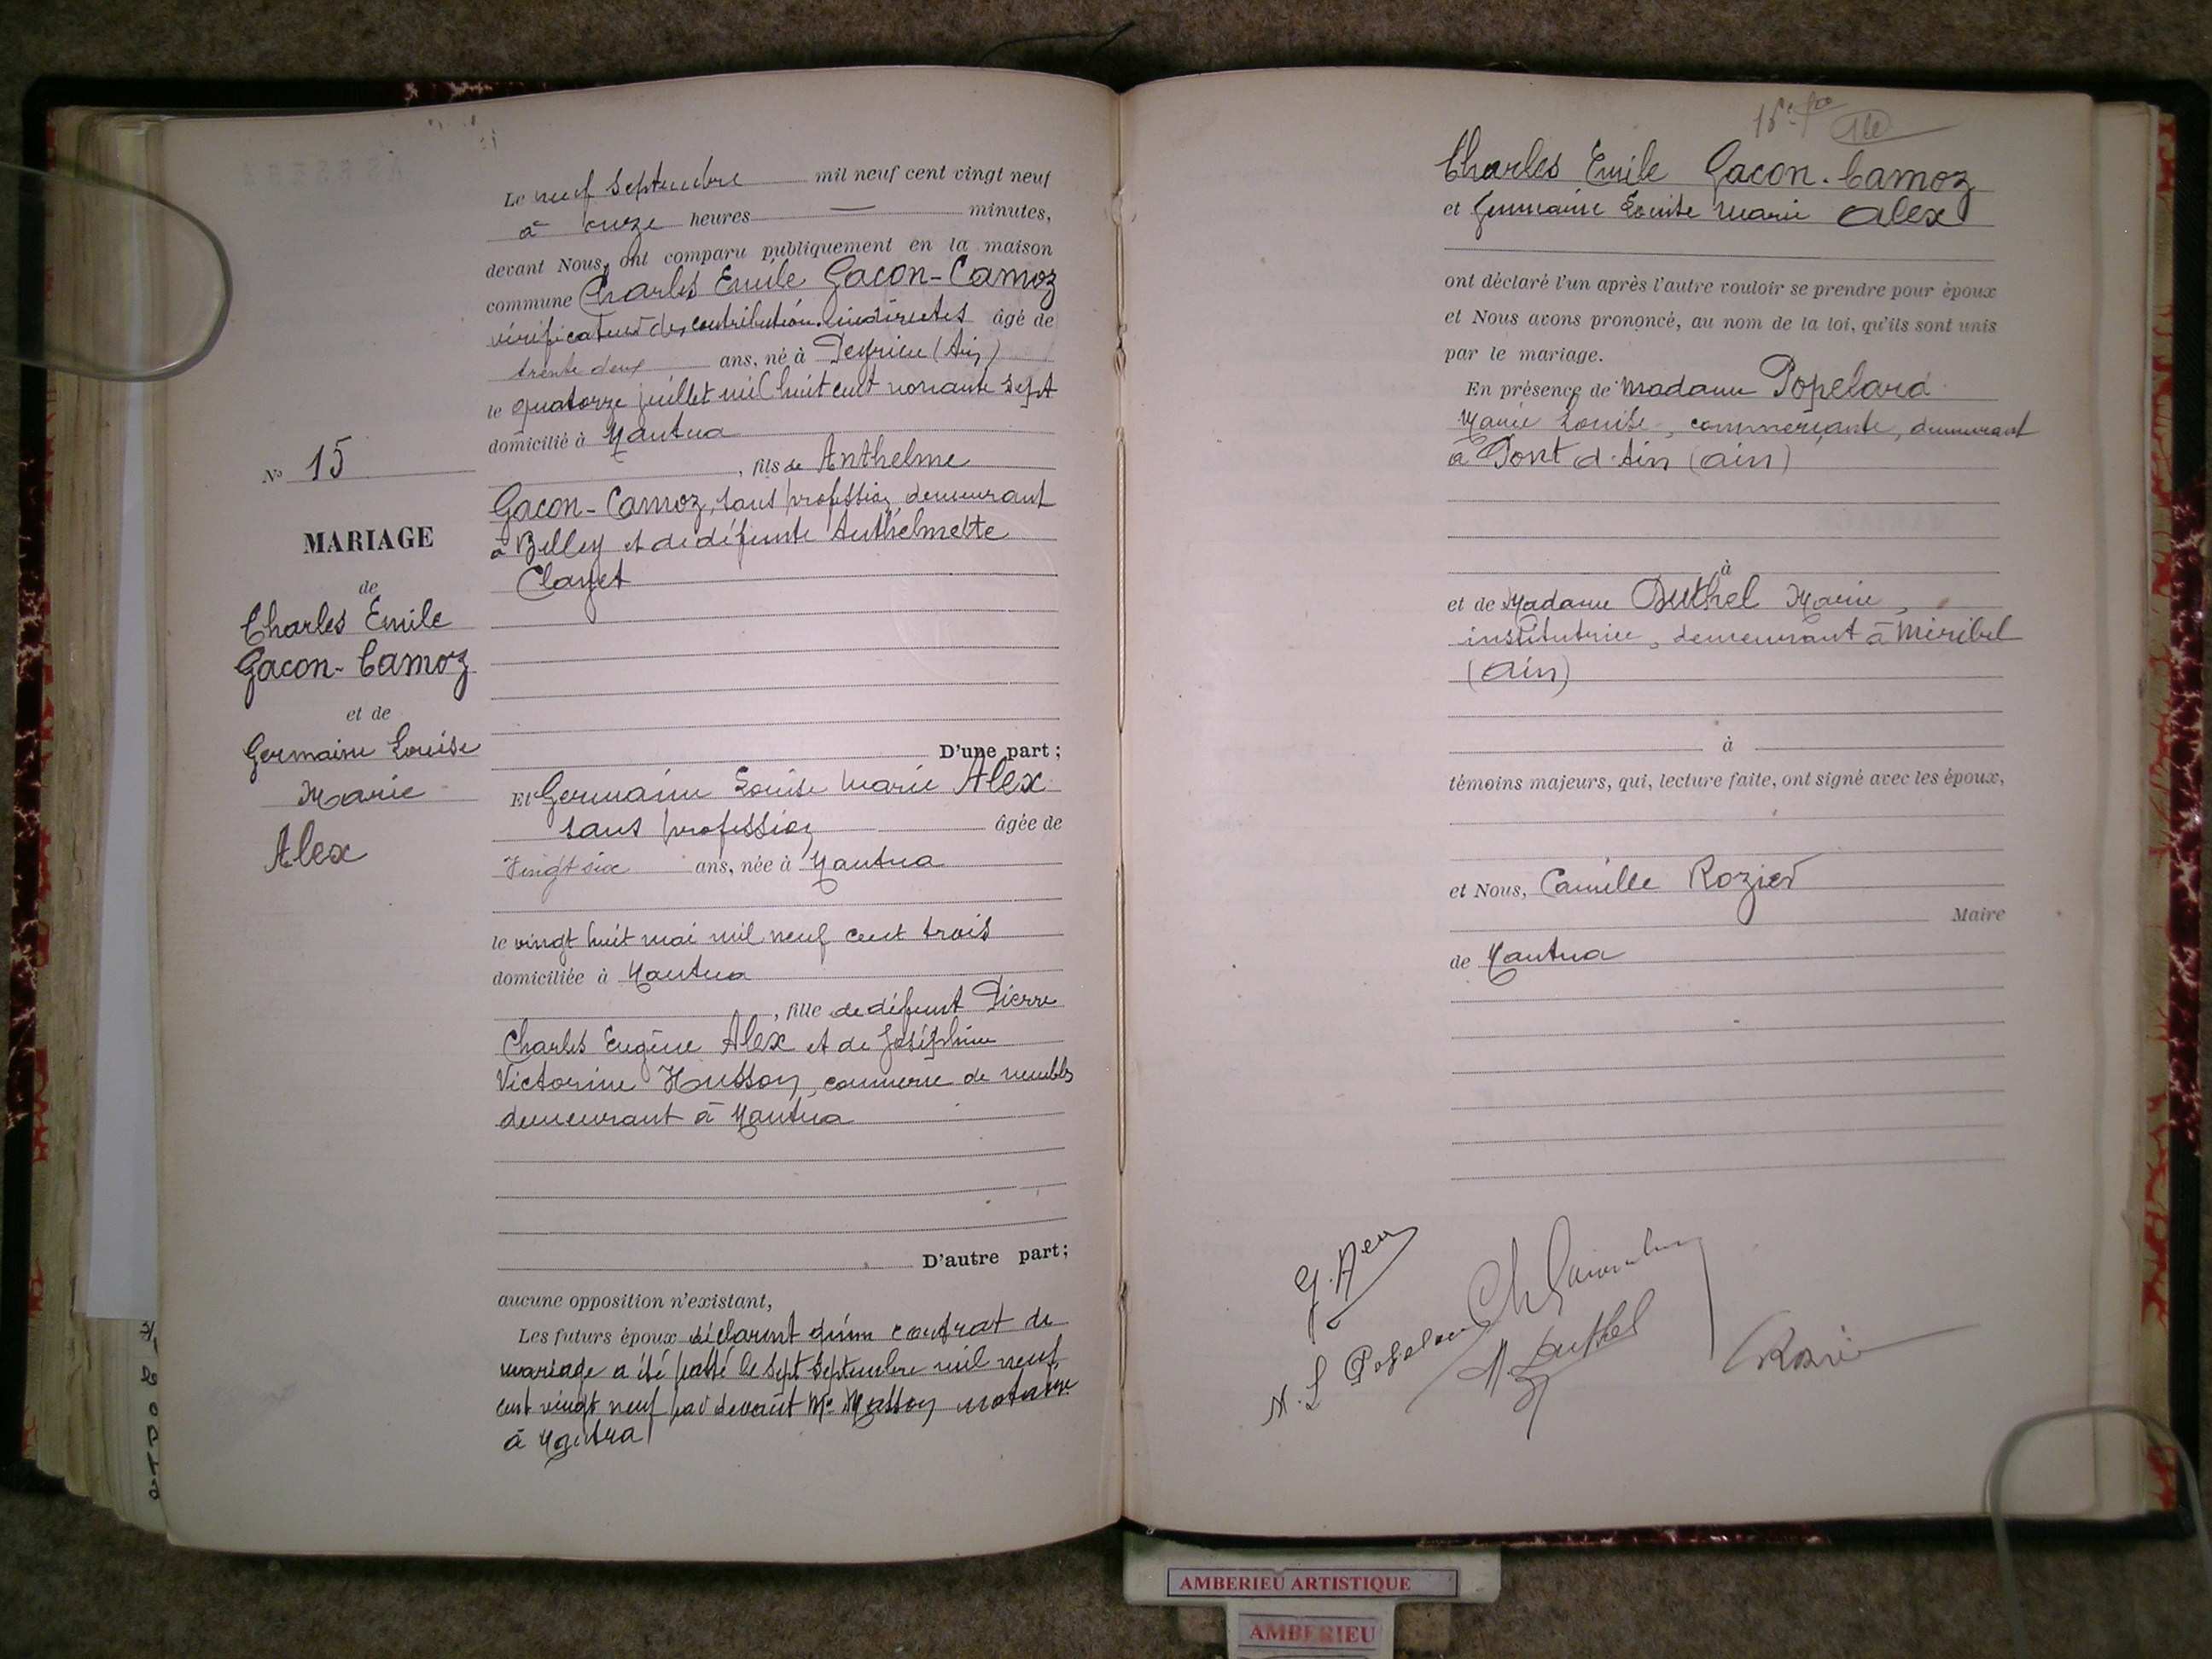 N° 15
MARIAGE
de
Charles Emile
Gacon-Camoz
et de
Germaine Louise
Marie
Alex
Le neuf Septembre mil neuf cent vingt neuf
à onze heures — minutes,
devant Nous, ont comparu publiquement en la maison
commune Charles Emile Gacon-Camoz
vérificateur des contributions indirectes âgé de
trente deux ans, né à Peyrieu (Ain)
le quatorze juillet mil huit cent nonante sept
domicilié à Nantua
, fils de Anthelme
Gacon-Camoz, sans profession, demeurant
à Belley et de défunte Anthelmette
Clayet
D'une part;
Et Germaine Louise Marie Alex
sans profession âgée de
Vingt six ans, née à Nantua
le vingt huit mai mil neuf cent trois
domiciliée à Nantua
, fille de défunt Pierre
Charles Eugène Alex et de Joséphine
Victorine Husson, commerce de meubles
demeurant à Nantua
D'autre part;
aucune opposition n'existant,
Les futurs époux déclarent qu'un contrat de
mariage a été passé le sept Septembre mil neuf
cent vingt neuf par devant Me Masson notaire
à Nantua
Charles Emile Gacon-Camoz
et Germaine Louise Marie Alex
ont déclaré l'un après l'autre vouloir se prendre pour époux
et Nous avons prononcé, au nom de la loi, qu'ils sont unis
par le mariage.
En présence de Madame Popelard
Marie Louise, commerçante, demeurant
à Pont d'Ain (Ain)
à
et de Madame Duthel Marie,
institutrice, demeurant à Miribel
(Ain)
à
témoins majeurs, qui, lecture faite, ont signé avec les époux,
et Nous, Camille Rozier
Maire
de Nantua
G. Alex
M. L Popelard
M. Duthel
Rozier
AMBERIEU ARTISTIQUE
AMBERIEU